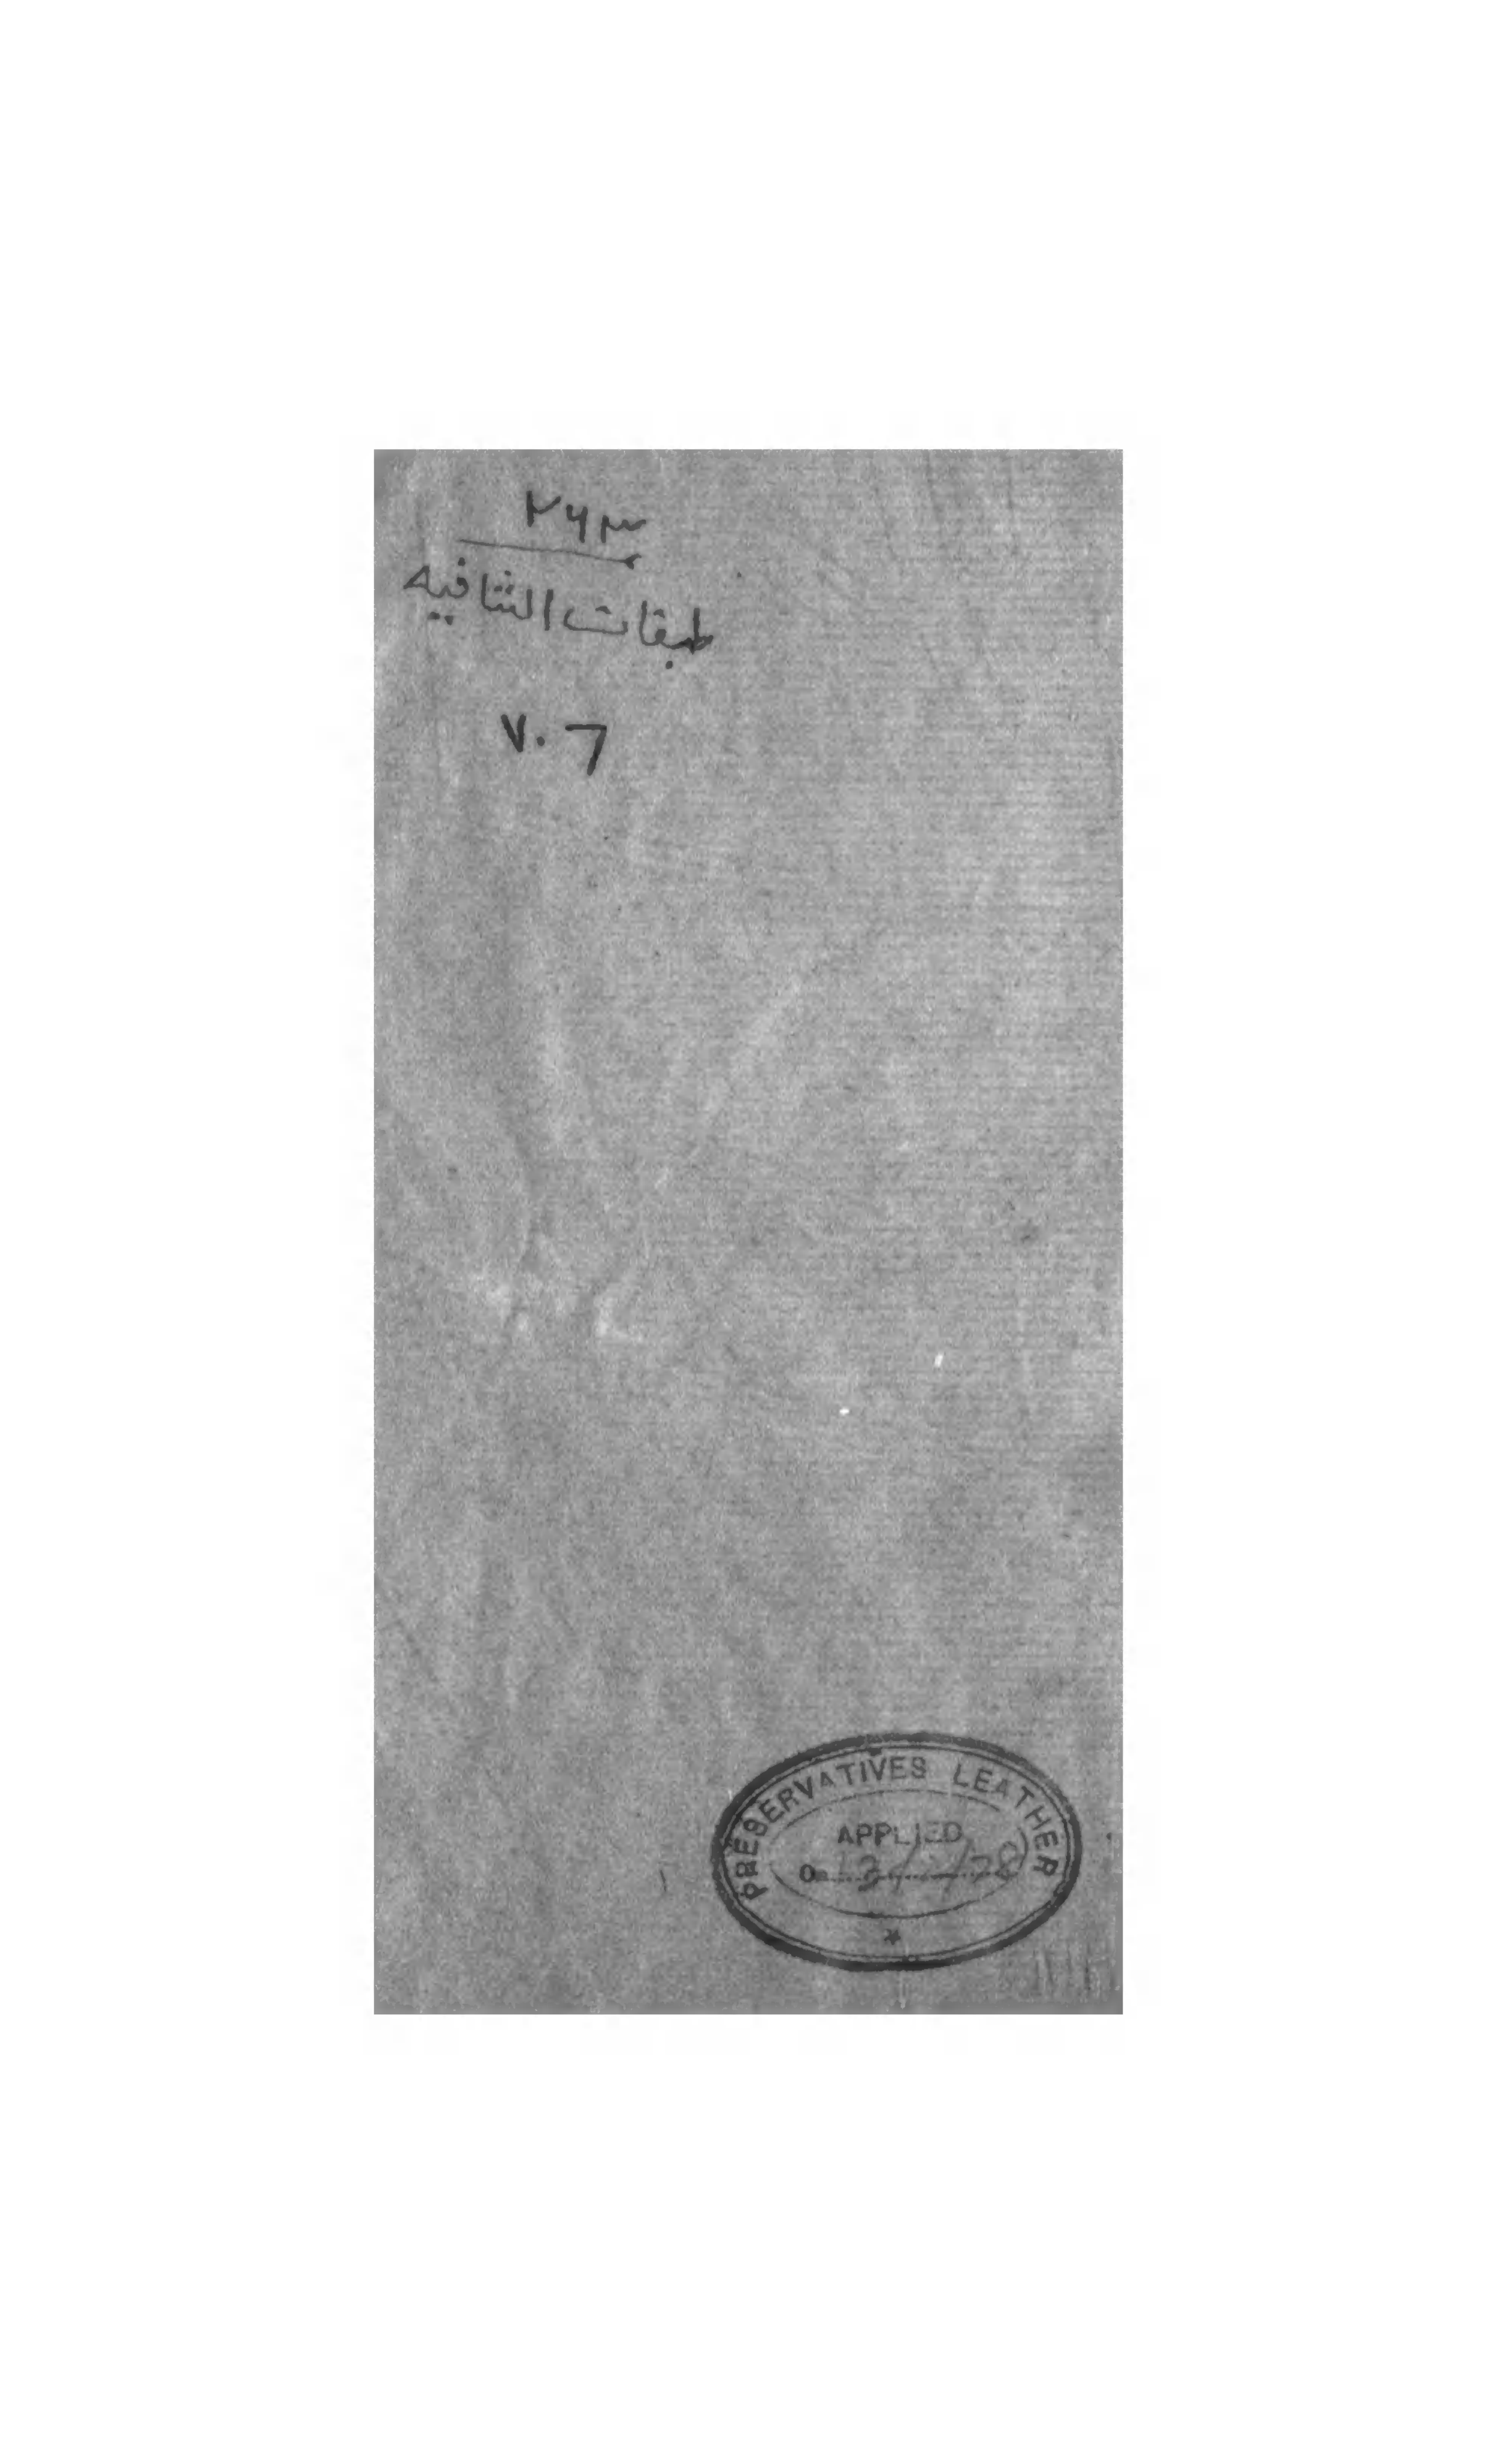 ۲۶۳
طبقات الشافيه
٧٠٦
PRESERVATIVES LEATHER
APPLIED
On